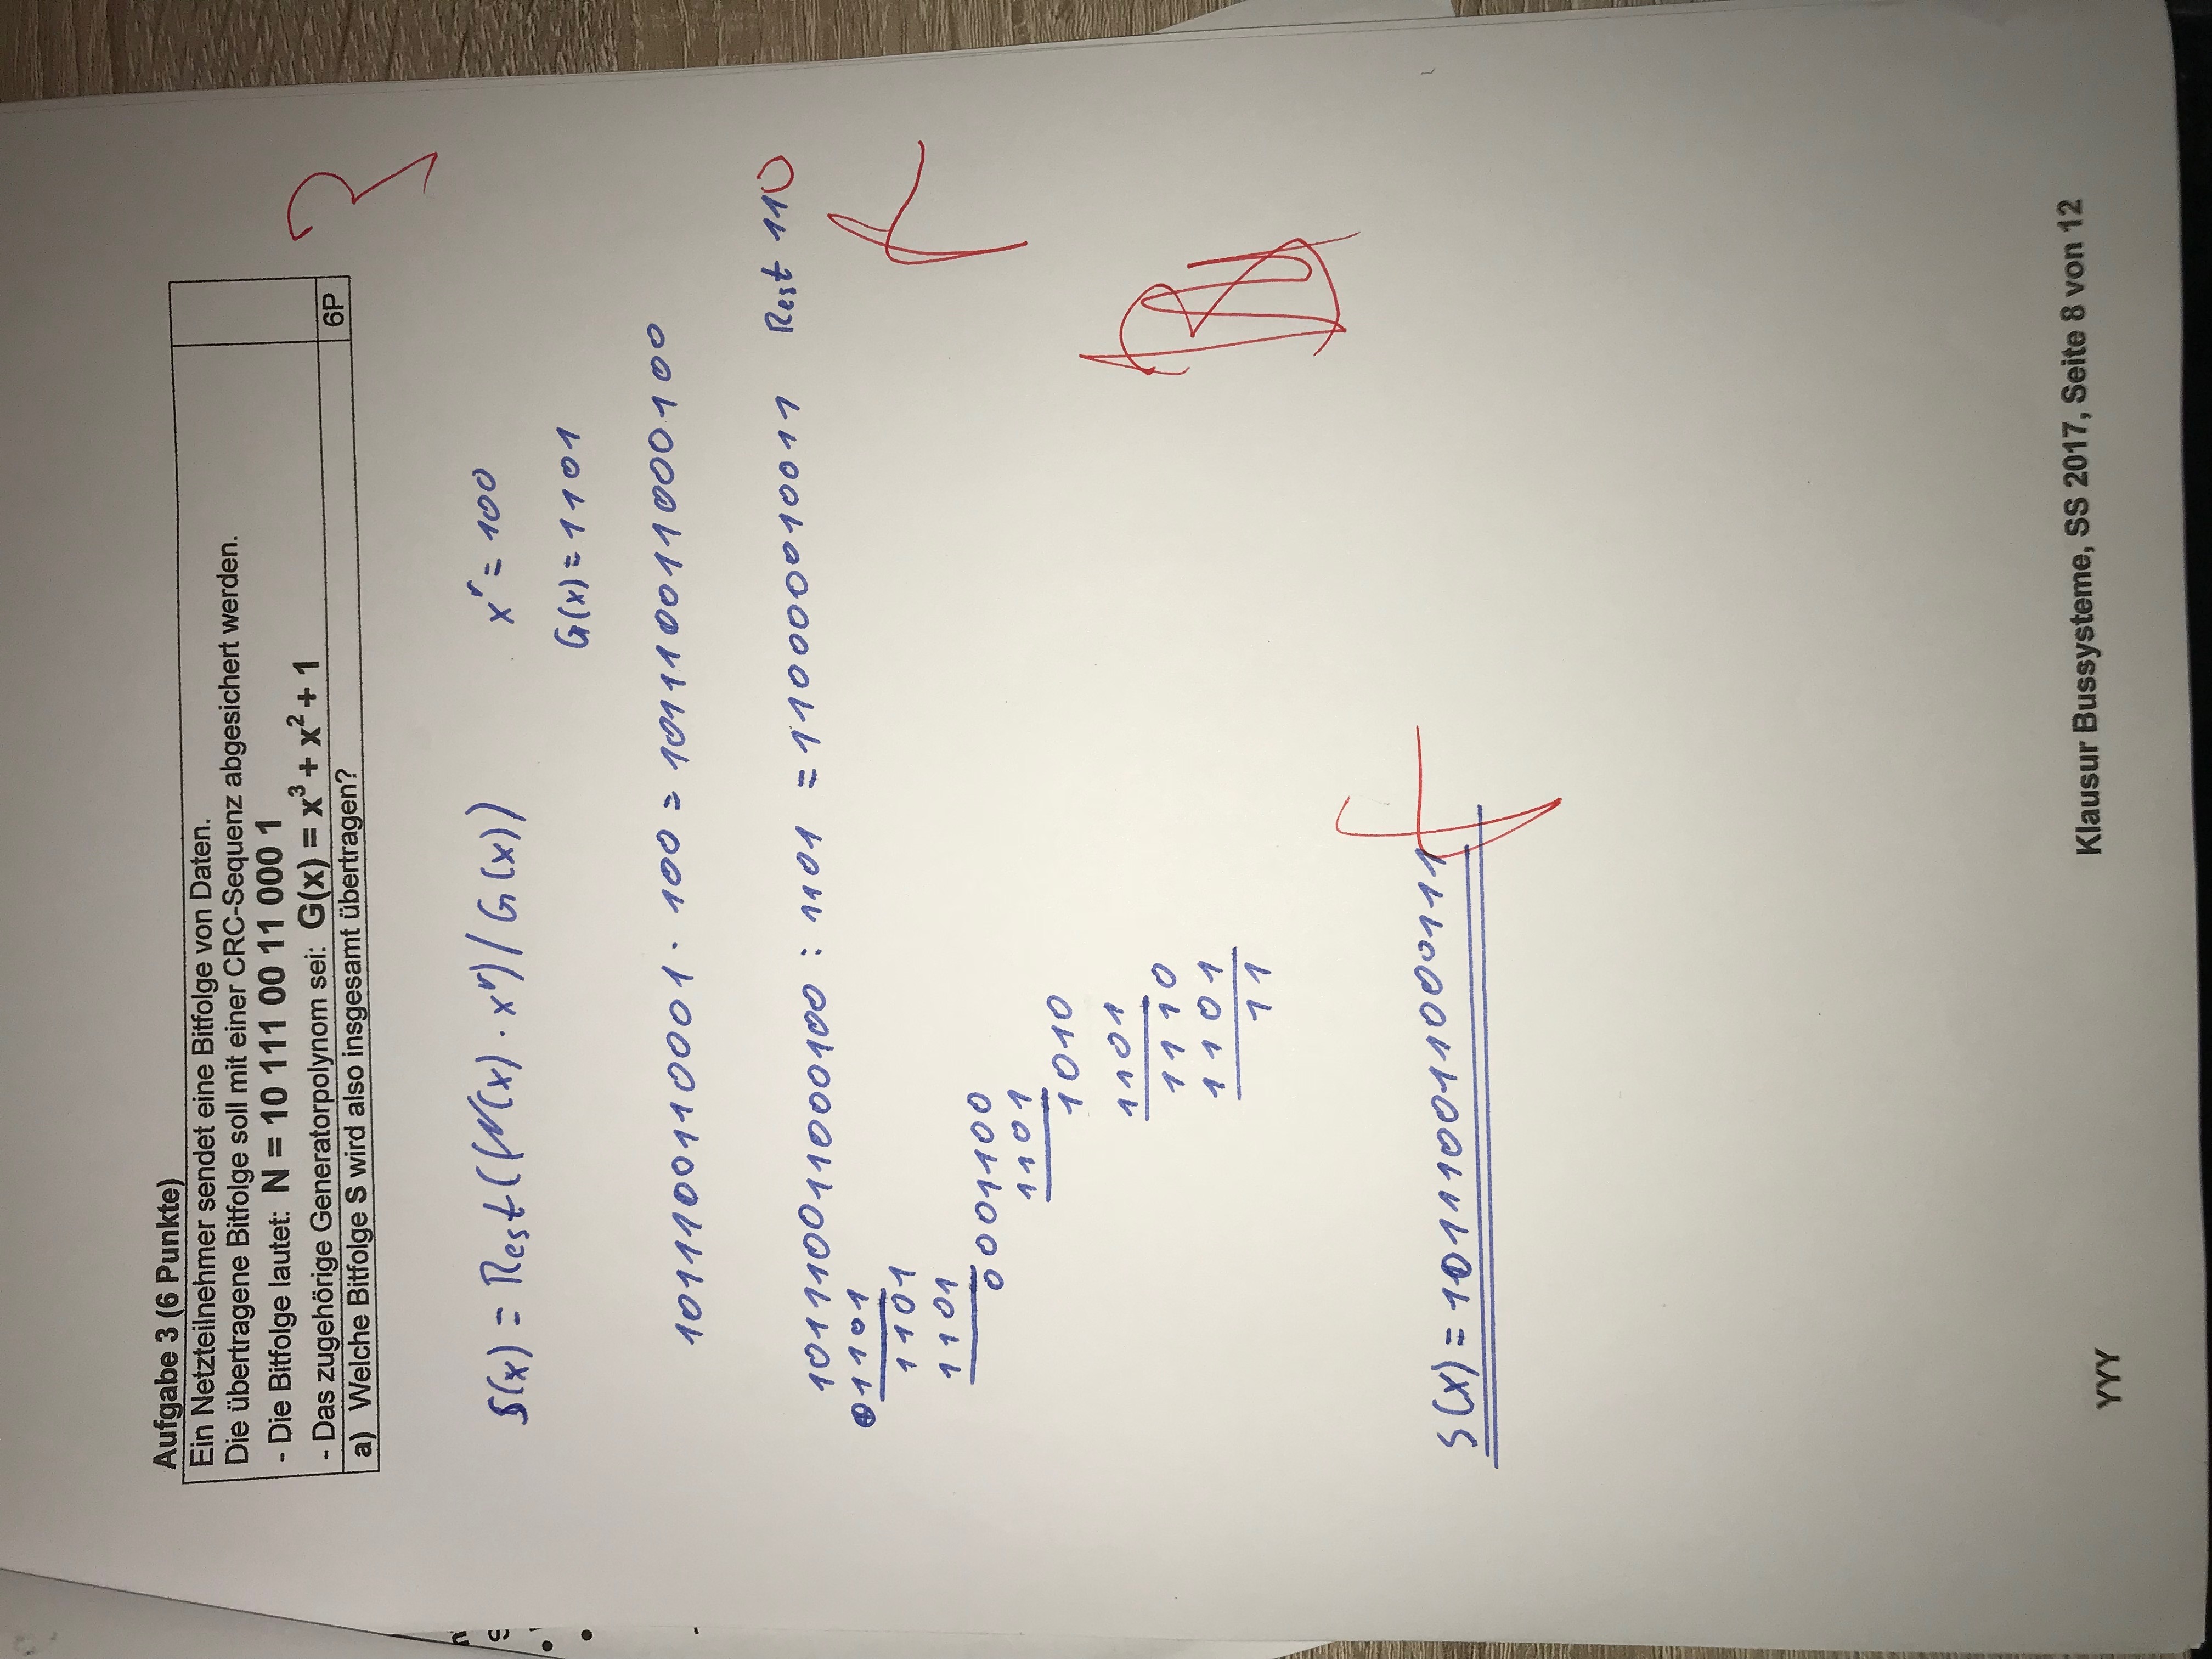 Aufgabe 3 (6 Punkte)
Ein Netzteilnehmer sendet eine Bitfolge von Daten.
Die übertragene Bitfolge soll mit einer CRC-Sequenz abgesichert werden.
- Die Bitfolge lautet: N = 10 111 00 11 000 1
- Das zugehörige Generatorpolynom sei: G(x) = x³ + x² + 1
a) Welche Bitfolge S wird also insgesamt übertragen? 6P
3
S(x) = Rest((N(x) · xʳ) / G(x)) xʳ = 100
G(x) = 1101
1011100110001 · 100 = 101110011000100
101110011000100 : 1101 = 110000010011 Rest 110
⊕1101
1101
1101
0001100
1101
1010
1101
1110
1101
11
f
S(x) = 101110011000111 f
YYY
Klausur Bussysteme, SS 2017, Seite 8 von 12